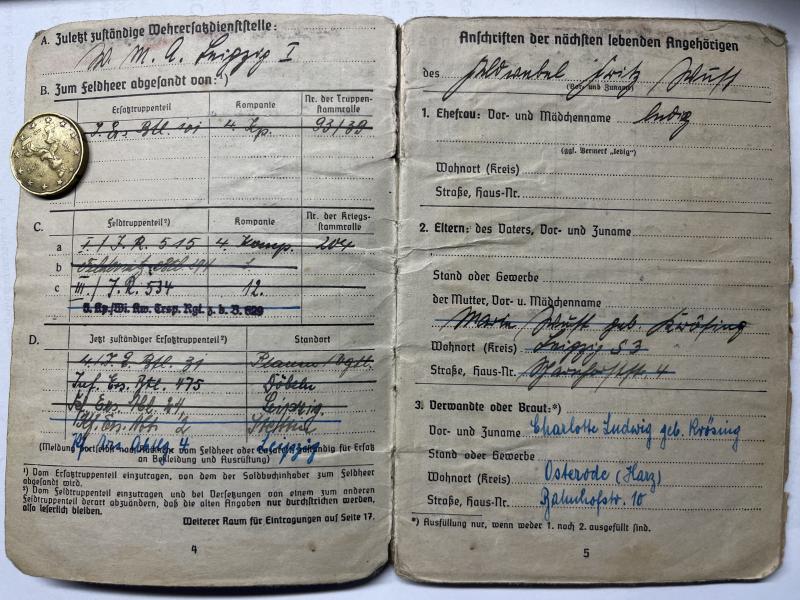 A. Zuletzt zuständige Wehrersatzdienststelle:
W. M. A. Leipzig I
B. Zum Feldheer abgesandt von:¹)
Ersatztruppenteil Kompanie Nr. der Truppen-
stammrolle
J. Ers. Btl. 101 4. Kp. 93/39
C. Feldtruppenteil²) Kompanie Nr. der Kriegs-
stammrolle
a I./J.R. 515 4. Komp. 204
b
c III./J.R. 534 12.
D. Jetzt zuständiger Ersatztruppenteil²) Standort
4./J. E. Btl. 31 Plauen Vogtl.
Inf. Ers. Btl. 475 Döbeln
Leipzig
Kf. Ers. Abt. 2 Stettin
Kf. Ers. Abtlg. 4 Leipzig
(Meldung dortselbst nach Rückkehr vom Feldheer oder Lazarett, zuständig für Ersatz
an Bekleidung und Ausrüstung)
¹) Vom Ersatztruppenteil einzutragen, von dem der Soldbuchinhaber zum Feldheer
abgesandt wird.
²) Vom Feldtruppenteil einzutragen und bei Versetzungen von einem zum anderen
Feldtruppenteil derart abzuändern, daß die alten Angaben nur durchstrichen werden,
also leserlich bleiben.
Weiterer Raum für Eintragungen auf Seite 17.
4
Anschriften der nächsten lebenden Angehörigen
des Feldwebel Fritz Wust
(Vor- und Zuname)
1. Ehefrau: Vor- und Mädchenname ledig
(ggf. Vermerk „ledig")
Wohnort (Kreis)
Straße, Haus-Nr.
2. Eltern: des Vaters, Vor- und Zuname
Stand oder Gewerbe
der Mutter, Vor- u. Mädchenname
Marie Wust geb. Krösing
Wohnort (Kreis) Leipzig S 3
Straße, Haus-Nr. Scharnhorststr. 4
3. Verwandte oder Braut:*)
Vor- und Zuname Charlotte Ludwig geb. Krösing
Stand oder Gewerbe
Wohnort (Kreis) Osterode (Harz)
Straße, Haus-Nr. Bahnhofstr. 10
*) Ausfüllung nur, wenn weder 1. noch 2. ausgefüllt sind.
5